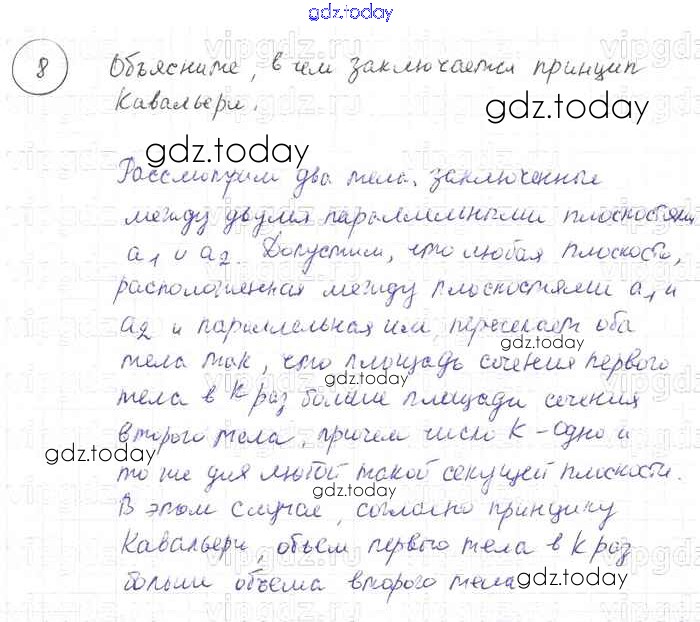 gdz.today
8 Объясните, в чем заключается принцип
Кавальери.
gdz.today
gdz.today
Рассмотрим два тела, заключенные
между двумя параллельными плоскостями
a1 и a2. Допустим, что любая плоскость,
gdz.today
расположенная между плоскостями a1 и
a2 и параллельная им, пересекает оба
gdz.today
тела так, что площадь сечения первого
gdz.today
тела в K раз больше площади сечения
второго тела, причем число K - одно и
gdz.today
то же для любой такой секущей плоскости.
gdz.today
В этом случае, согласно принципу
Кавальери, объем первого тела в K раз
больше объема второго тела
gdz.today